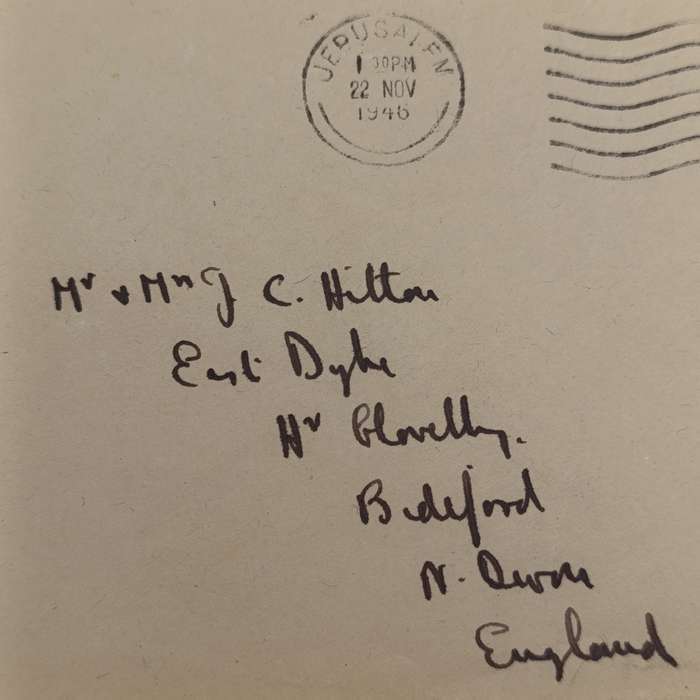 JERUSALEM
1 30PM
22 NOV
1946
Mr & Mrs J C. Hilton
East Dyke
Nr Clovelly.
Bideford
N. Devon
England